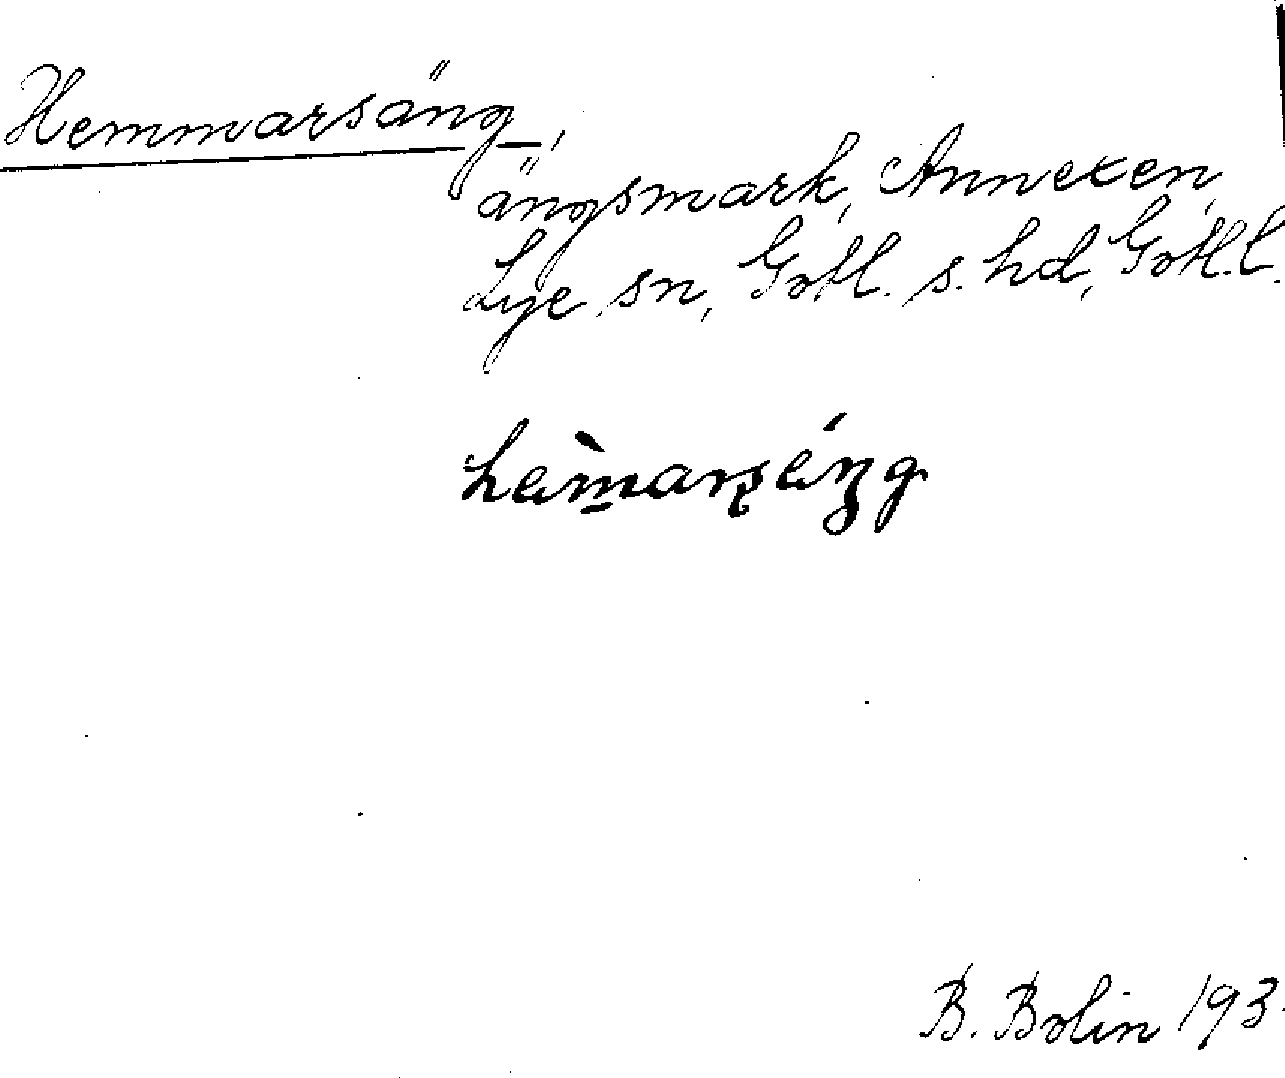 Hemmarsäng,
ängsmark, Annexen,
Lye sn, Gotl. s. hd, Gotl. l.
B. Bolin 193